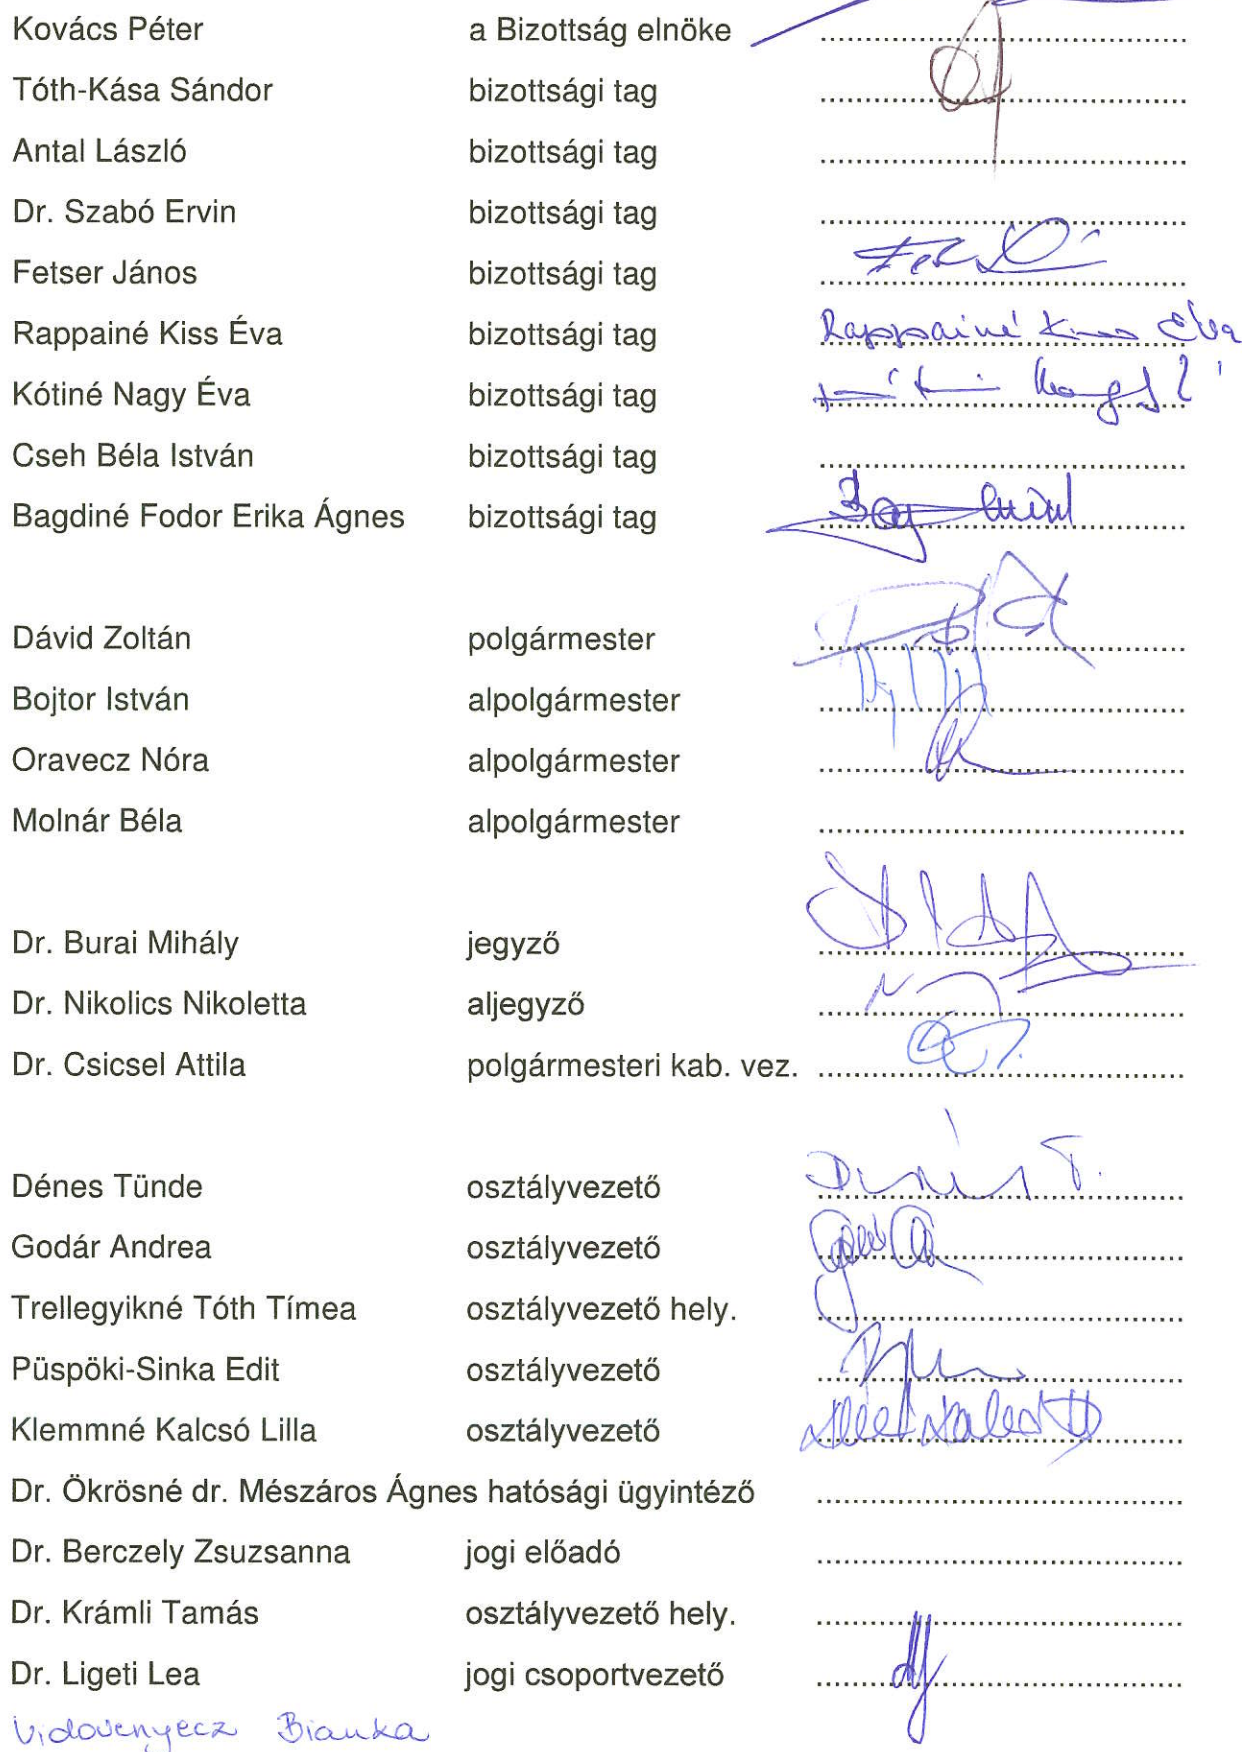 Kovács Péter a Bizottság elnöke ........................................
Tóth-Kása Sándor bizottsági tag ........................................
Antal László bizottsági tag ........................................
Dr. Szabó Ervin bizottsági tag ........................................
Fetser János bizottsági tag ........................................
Rappainé Kiss Éva bizottsági tag Rappainé Kiss Éva
Kótiné Nagy Éva bizottsági tag ........................................
Cseh Béla István bizottsági tag ........................................
Bagdiné Fodor Erika Ágnes bizottsági tag ........................................
Dávid Zoltán polgármester ........................................
Bojtor István alpolgármester ........................................
Oravecz Nóra alpolgármester ........................................
Molnár Béla alpolgármester ........................................
Dr. Burai Mihály jegyző ........................................
Dr. Nikolics Nikoletta aljegyző ........................................
Dr. Csicsel Attila polgármesteri kab. vez. ........................................
Dénes Tünde osztályvezető ........................................
Godár Andrea osztályvezető ........................................
Trellegyikné Tóth Tímea osztályvezető hely. ........................................
Püspöki-Sinka Edit osztályvezető ........................................
Klemmné Kalcsó Lilla osztályvezető ........................................
Dr. Ökrösné dr. Mészáros Ágnes hatósági ügyintéző ........................................
Dr. Berczely Zsuzsanna jogi előadó ........................................
Dr. Krámli Tamás osztályvezető hely. ........................................
Dr. Ligeti Lea jogi csoportvezető ........................................
Vidovenyecz Bianka